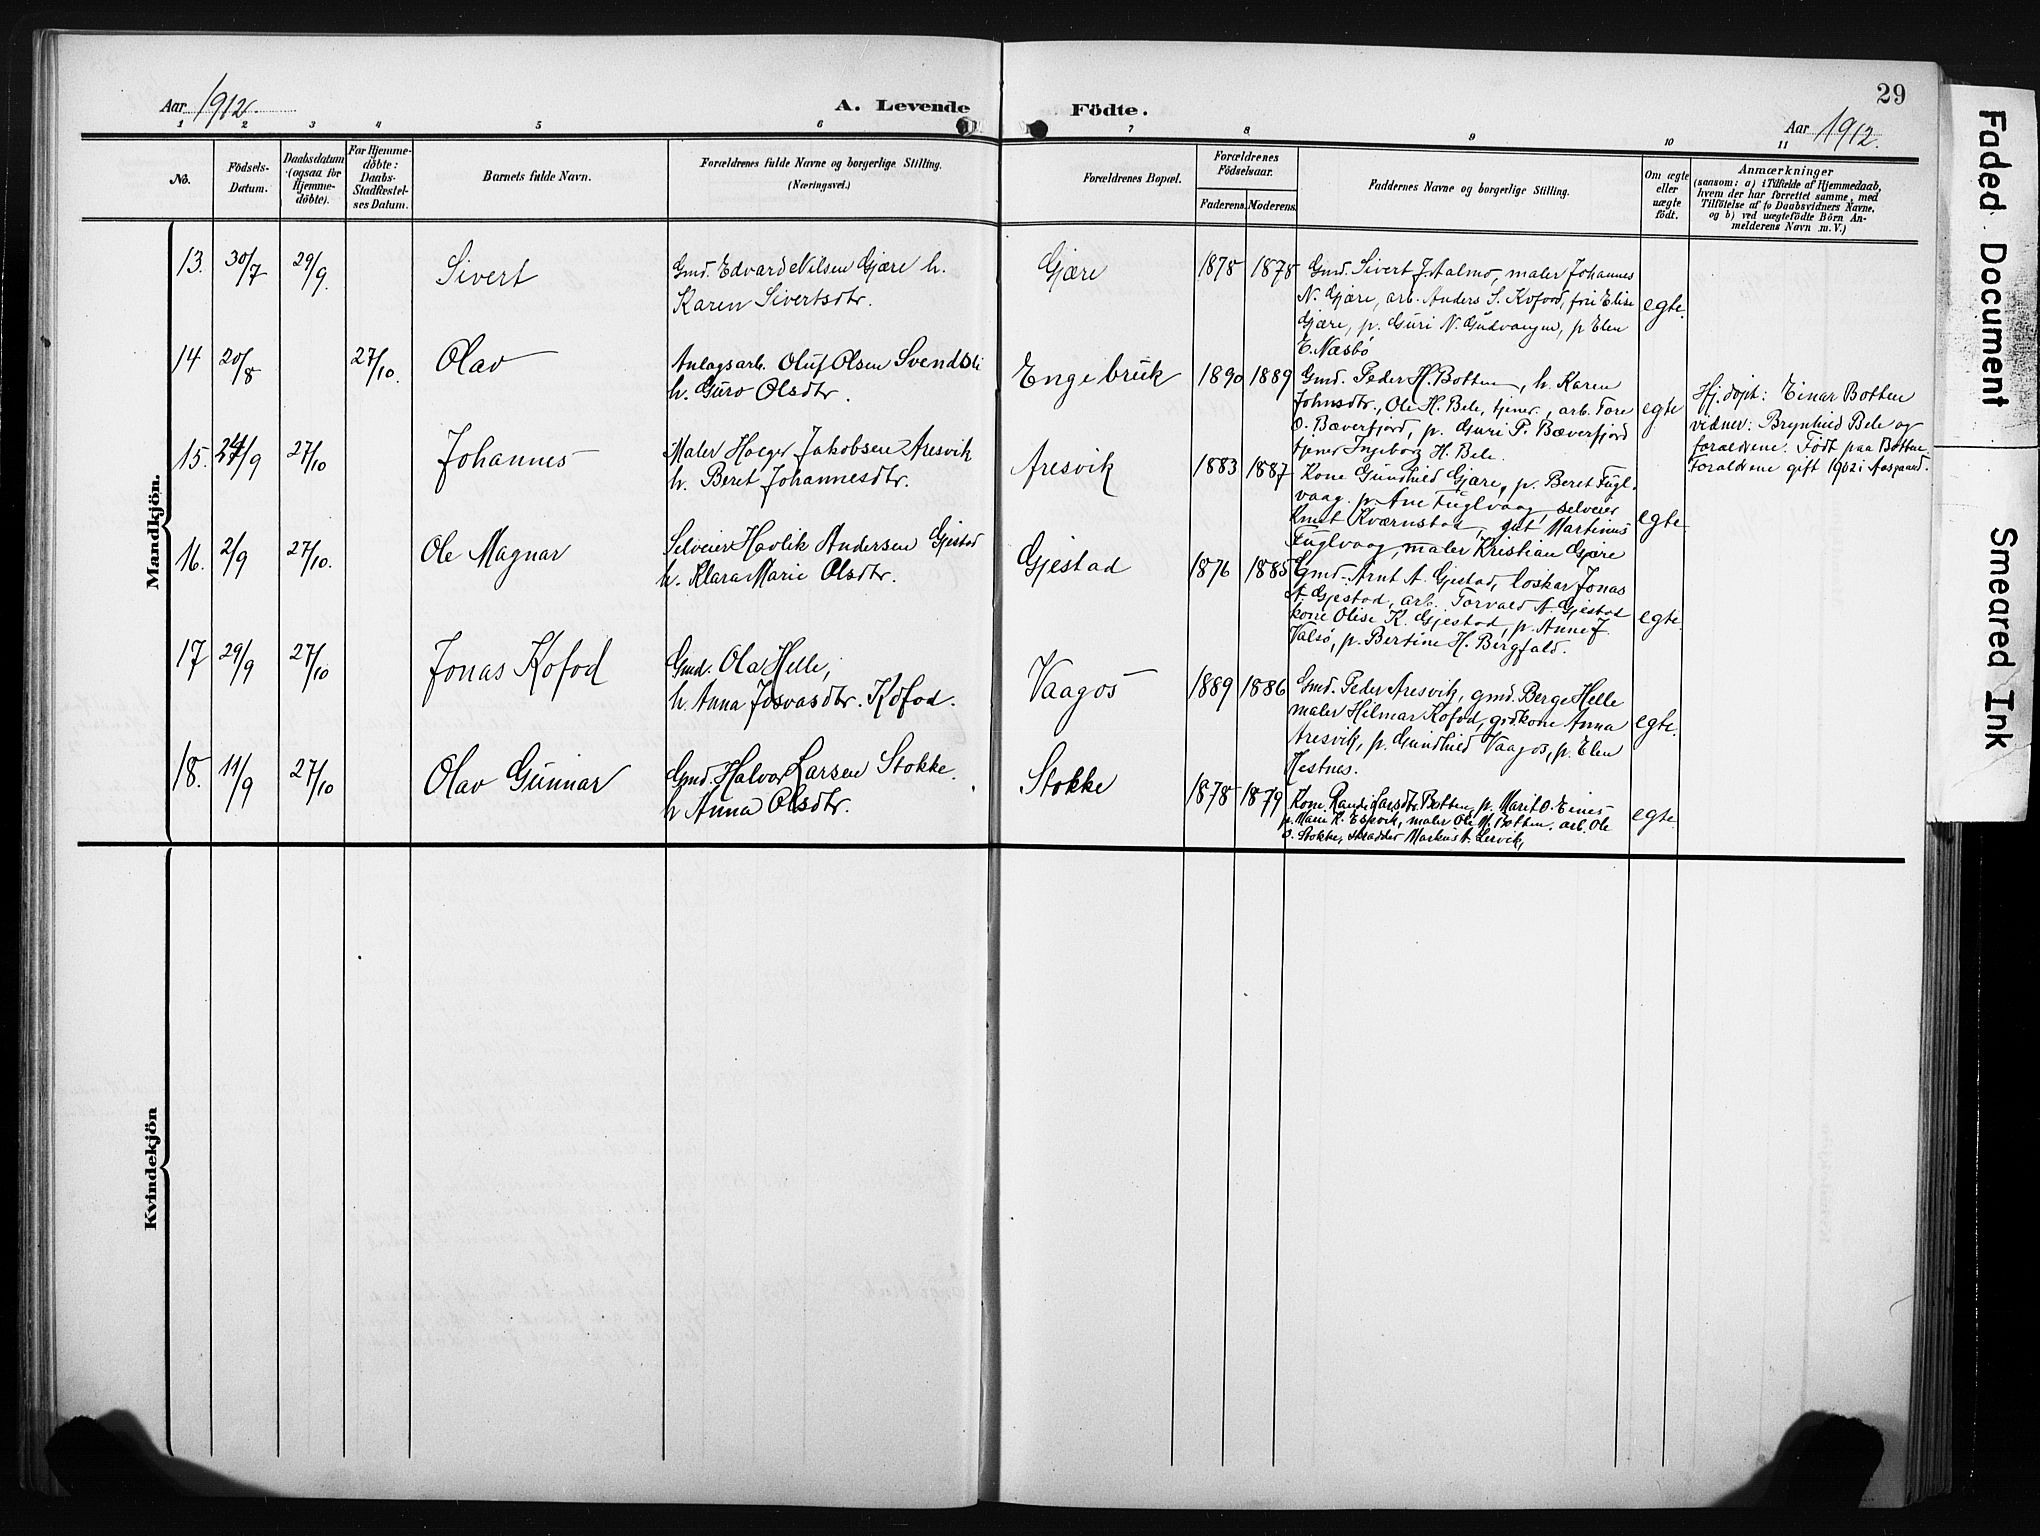 29
Aar 1912.
A. Levende Födte.
Aar 1912.
1 2 3 4 5 6 7 8 9 10 11
No.
Födsels-
Datum.
Daabsdatum
(ogsaa for
Hjemme-
döbte).
For Hjemme-
döbte:
Daabs-
Stadfæstel-
ses Datum.
Barnets fulde Navn.
Forældrenes fulde Navne og borgerlige Stilling.
(Næringsvei.)
Forældrenes Bopæl.
Forældrenes
Födselsaar.
Faderens. Moderens.
Faddernes Navne og borgerlige Stilling.
Om ægte
eller
uægte
födt.
Anmærkninger
(saasom: a) i Tilfælde af Hjemmedaab,
hvem der har forrettet samme, med
Tilföielse af to Daabsvidners Navne,
og b) ved uægtefödte Börn An-
melderens Navn m. V.)
Mandkjön.
13. 30/7 29/9. Sivert
Gmd. Edvard Nilsen Gjære h.
Karen Sivertsdtr.
Gjære 1878 1878
Gmd. Sivert J. Aalmo, maler Johannes
N. Gjære, arb. Anders S. Kofoed, frü Elise
Gjære, p. Guri N. Gudvangen, p Elen
E. Næsbö
egte.
14 20/8 27/10. Olav
Anlagsarb. Oluf Olsen Svendsli
h. Guro Olsdtr.
Engebruk 1890 1889
Gmd. Peder H. Botten, h. Karen
Johnsdtr., Ole H. Bele, tjener, arb. Tore
O. Bæverfjord, p. Guri P. Bæverfjord
tjener Ingeborg H. Bele.
egte
Hj.döpt: Einar Botten
vidner: Brynhild Bele og
forældrene. Födt paa Botten
Forældrene gift 1902 i Aasgaard.
15. 24/9 27/10 Johannes
Maler Holger Jakobsen Aresvik
h. Beret Johannesdtr.
Aresvik 1883 1887
Kone Gunhild Gjære, p. Beret Fugl-
vaag, p. Ane Fuglvaag, selveier
Knut Kværnstad, gut Martinus
Fuglvaag, maler Kristian Gjære
egte
16. 2/9 27/10. Ole Magnar
Selveier Havlik Andersen Gjestad
h. Klara Marie Olsdtr.
Gjestad 1876 1885
Gmd. Arnt A. Gjestad, löskar Jonas
A. Gjestad, arb. Torvald A. Gjestad
kone Olise K. Gjestad, p. Anne J.
Valsö, p. Bertine H. Bergfald.
egte.
17 29/9 27/10 Jonas Kofod
Gmd. Ola Helle,
h. Anna Josvasdtr. Kofod.
Vaagos 1889 1886
Gmd. Peder Aresvik, gmd. Berge Helle
maler Hilmar Kofod, grdkone Anna
Aresvik, p. Gunhild Vaagos, p. Elen
Hestnes.
egte.
18. 11/9 27/10 Olav Gunnar
Gmd. Halvor Larsen Stokke.
h Anna Olsdtr.
Stokke 1878 1879
Kone Randi Larsdtr. Botten, p. Marit O. Eines
p. Marie R. Espvik, maler Ole M. Botten, arb. Ole
O. Stokke, skrædder Markus A. Lervik,
egte.
Kvindekjön
Faded Document
Smeared Ink